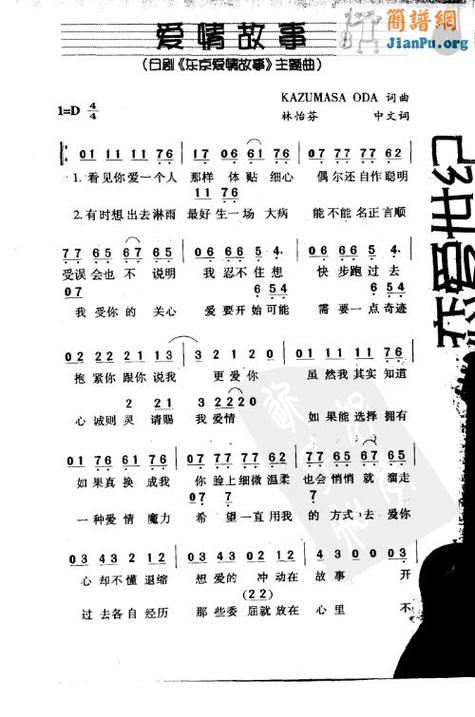 爱情故事
简谱网
JianPu.org
（日剧《东京爱情故事》主题曲）
KAZUMASA ODA 词曲
1=D 4/4
林怡芬 中文词
01 11 11 76 | 17 06 61 76 | 07 77 77 62
1.看见你爱一个人 那样 体贴 细心 偶尔还自作聪明
11 76
2.有时想出去淋雨 最好生一场 大病 能不能名正言顺
77 65 67 65 | 06 66 5 4 | 06 66 5 4
受误会也 不 说明 我 忍不 住想 快 步跑 过去
07 6 54 6 54
我 受你的 关心 爱 要开始可能 需 要 一点奇迹
02 22 21 13 | 3 21 20 | 01 11 11 76
抱 紧你 跟你 说我 更爱 你 虽 然我 其实 知道
2 21 3 2220
心诚则 灵 请赐 我 爱情 如 果能选择 拥有
01 76 61 65 | 07 77 67 65 | 07 77 67 65
如 果真 换 成我 你 脸上 细微 温柔 也会 悄悄 就 溜走
07 7 7
一种爱 情 魔力 希 望一直用我 的 方式去 爱你
03 43 21 20 | 03 43 21 12 | 4 30 00 03
心 却不 懂 退缩 想 爱的 冲 动在 故 事 开
(22)
过去各自 经历 那 些委 屈就放在 心里 不